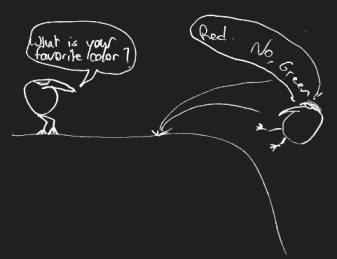 What is your
favorite color?
Red. No, Green